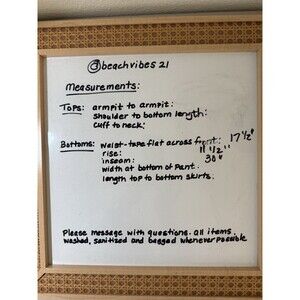 @beachvibes 21
Measurements:
Tops: armpit to armpit:
shoulder to bottom length:
cuff to neck:
Bottoms: waist-tape flat across front: 17 1/2"
rise: 11 1/2"
inseam: 30"
width at bottom of pant:
length top to bottom skirts:
Please message with questions. all items
washed, sanitized and bagged whenever possible